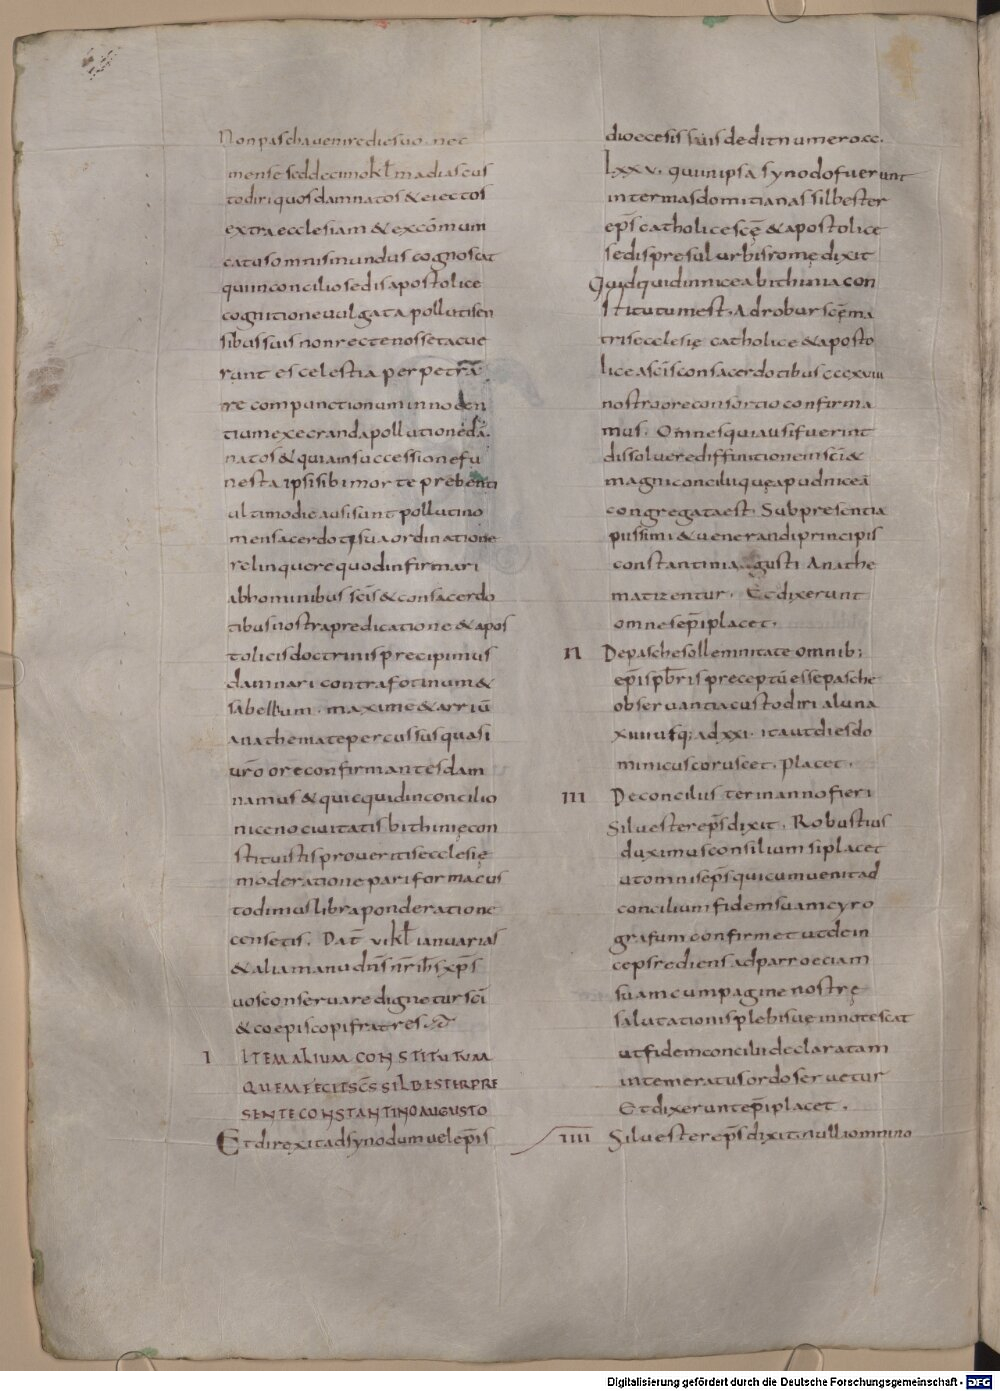 Non pascha venire die suo. nec
mense sed decimo kł madias cus
todiri quos damnatos & eiectos
extra ecclesiam & excōmuni
catus omnis mundus cognoscat
qui in concilio sedis apostolice
cognitione vulgata pollutis en
sibus suis non recte nosse tacue
runt e scelestia perpetra
re compunctionum innocen
tium execranda pollutione dā.
natos & quia in successione fu
nesta ipsi sibi morte prebenti
ultimo die ausi sunt pollutino
men sacerdotis sua ordinatione
relinquere quod infirmari
ab hominibus scīs & consacerdo
tibus nostra predicatione & apos
tolicis doctrinis precipimus
damnari contra fotinum &
sabellium. maxime & arriū
anathemate percussus quasi
ūro ore confirmantes dam
namus & quicquid in concilio
niceno civitatis bithinię con
stituistis pro veritis ecclesię
moderatione pari forma cus
todimus libra ponderatione
censetis. Dat̄ vi kł ianuarias
& alia manu dn̄s nr̄ ih̄s xp̄s
vos conservare dignetur scī
& coepiscopi fratres
I ITEM ALIUM CONSTITUTUM
QUEM FECIT SC̄S SILBESTER PRE
SENTE CONSTANTINO AUGUSTO
Et direxit ad synodum vel ep̄is
diocesis suis dedit numero cc.
Lxxv. qui in ipsa synodo fuerunt
in termas domitianas silbester
ep̄s catholice scę̄ & apostolice
sedis presul urbis romę dixit
Quidquid in nicea bithinia con
stitutum est. Ad robur scę̄ ma
tris ecclesię catholice & aposto
lice a scīs consacerdotibus cccxviii
nostro ore consortio confirma
mus. Omnes qui ausi fuerint
dissolvere diffinitionem scī &
magni concilii quę apud niceā
congregata est. Sub presentia
piissimi & venerandi principis
constantini augusti Anathe
matizentur. Et dixerunt
omnes ep̄i placet.
II De pasche sollemnitate omnib;
ep̄is pb̄ris preceptū esse pasche
observantia custodiri a luna
xiiii usq; ad xxi. ita ut dies do
minicus coruscet. placet.
III De conciliis ter in anno fieri
Silvester ep̄s dixit. Robustius
duximus consilium si placet
ut omnis ep̄s qui cum venit ad
concilium fidem suam cyro
grafum confirmet ut dein
ceps rediens ad parroeciam
suam cum pagine nostrę
salutationis plebi suę innotescat
ut fidem concilii declaratam
intemeratus ordo servetur
Et dixerunt ep̄i placet.
IIII Silvester ep̄s dixit nulli omnino